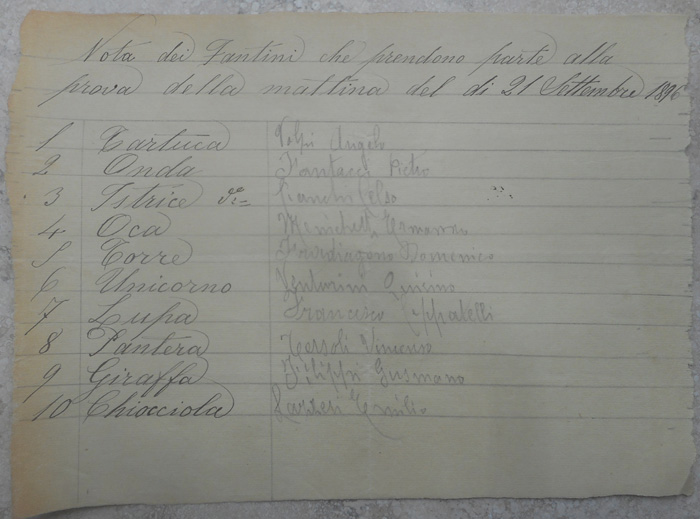 Nota dei Fantini che prendono parte alla
prova della mattina del di 21 Settembre 1896
1 Tartuca Volpi Angelo
2 Onda Fantacci Pietro
3 Istrice
4 Oca Menichetti
5 Torre Domenico
6 Unicorno Venturini
7 Lupa Francesco
8 Pantera Tersoli Vincenzo
9 Giraffa Filippi Gusmano
10 Chiocciola Carreri Emilio